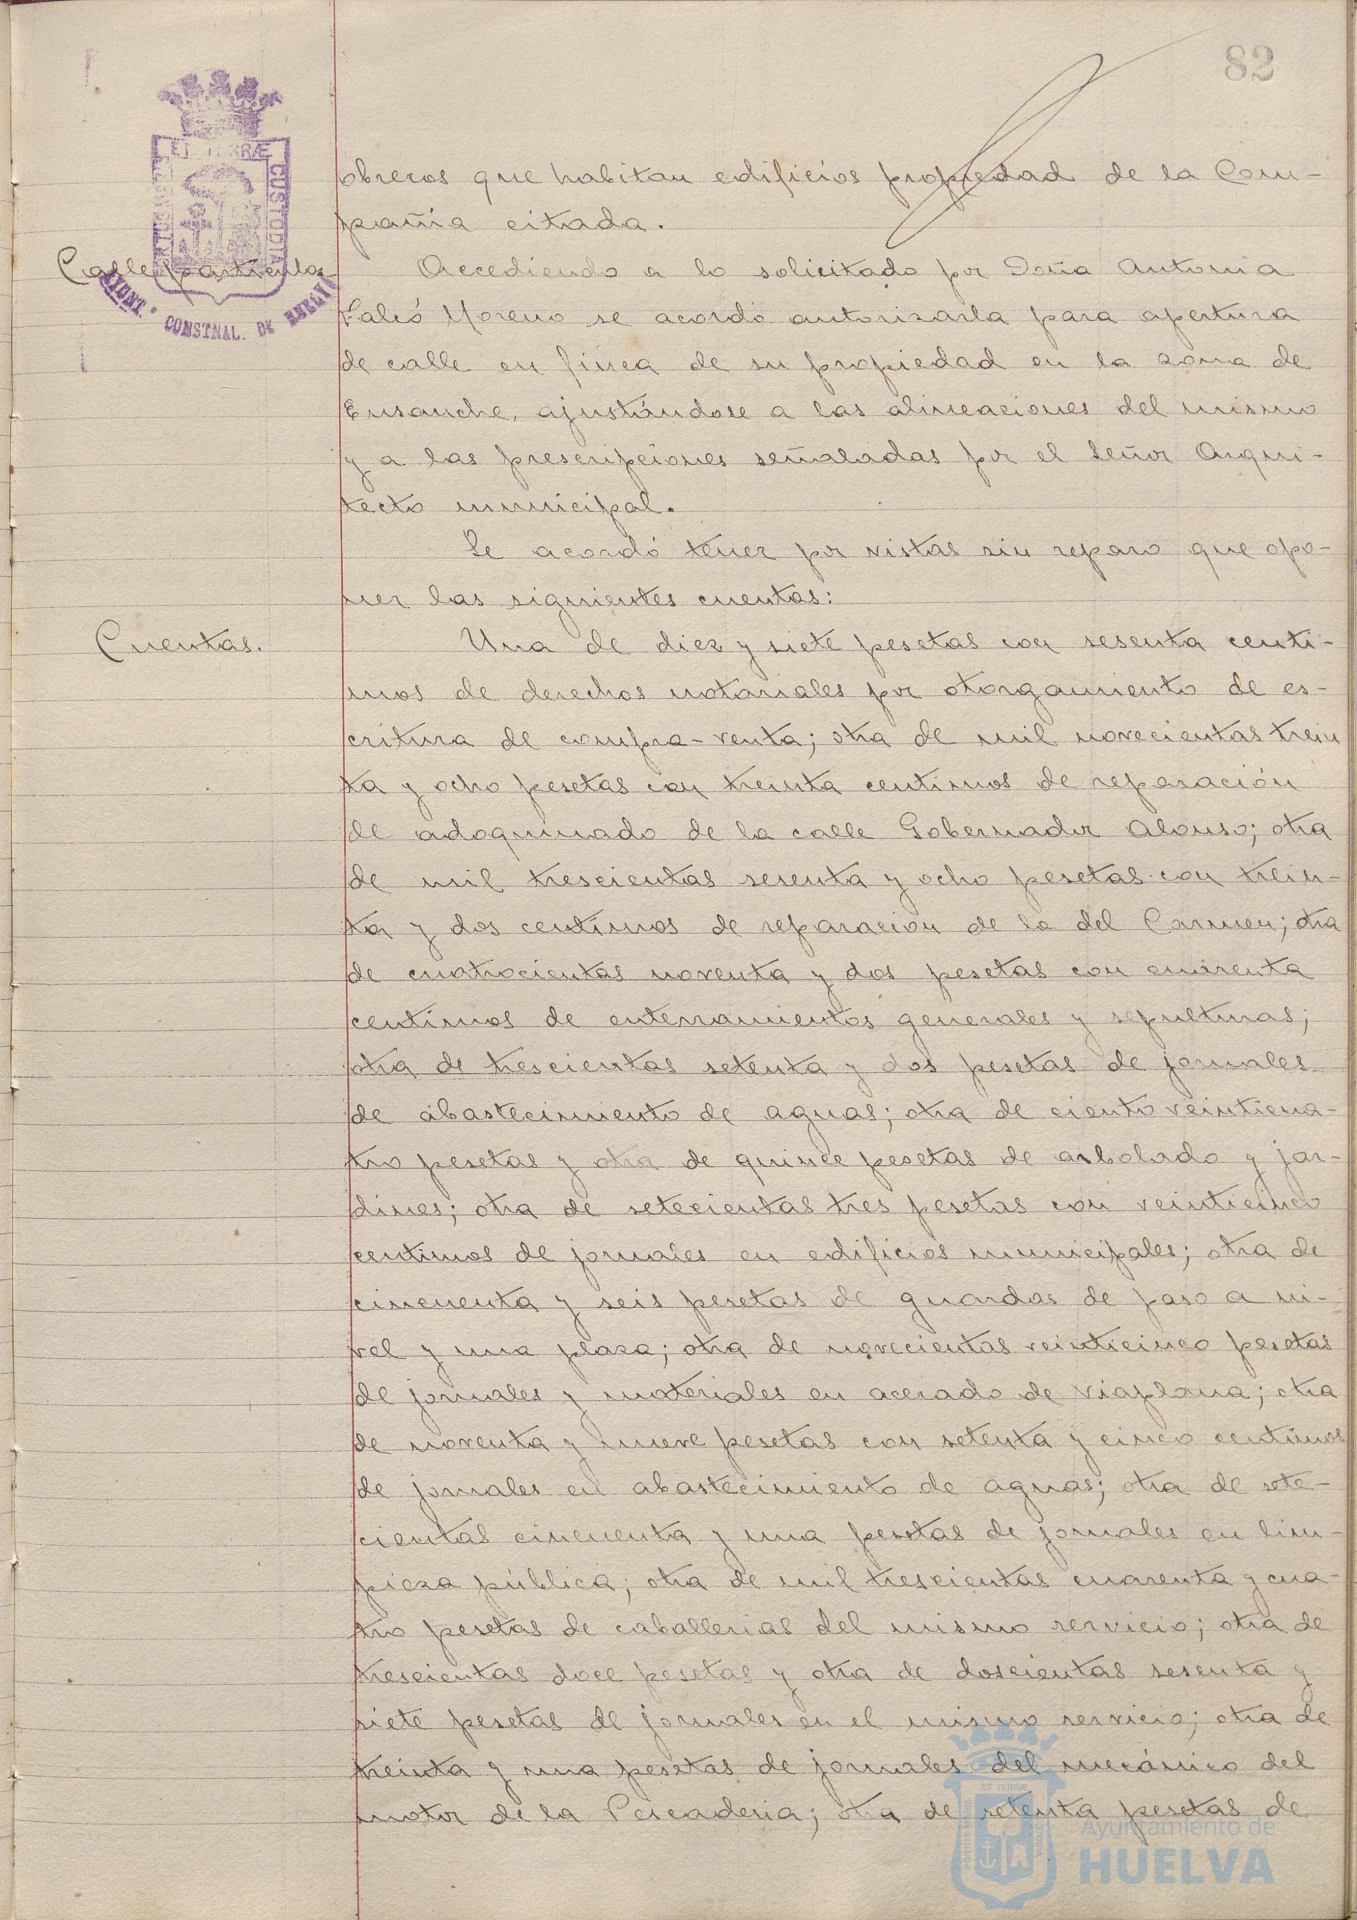 82
obreros que habitan edificios propiedad de la Com-
pañia citada.
Calle particular
Accediendo a lo solicitado por Doña Antonia
Falcó Moreno se acordó autorizarla para apertura
de calle en finca de su propiedad en la zona de
Ensanche, ajustándose a las alineaciones del mismo
y a las prescripciones señaladas por el Señor Arqui-
tecto municipal.
Se acordó tener por vistas sin reparo que opo-
ner las siguientes cuentas:
Cuentas.
Una de diez y siete pesetas con sesenta centi-
mos de derechos notariales por otorgamiento de es-
critura de compra-venta; otra de mil novecientas trein
ta y ocho pesetas con treinta centimos de reparación
de adoquinado de la calle Gobernador Alonso; otra
de mil trescientas sesenta y ocho pesetas con trein-
ta y dos centimos de reparacion de la del Carmen; otra
de cuatrocientas noventa y dos pesetas con cuarenta
centimos de enterramientos generales y sepulturas;
otra de trescientas setenta y dos pesetas de jornales
de abastecimiento de aguas; otra de ciento veinticua-
tro pesetas y otra de quince pesetas de arbolado y jar-
dines; otra de setecientas tres pesetas con veinticinco
centimos de jornales en edificios municipales; otra de
cincuenta y seis pesetas de guardas de paso a ni-
vel y una plaza; otra de novecientas veinticinco pesetas
de jornales y materiales en acerado de Viaplana; otra
de noventa y nueve pesetas con setenta y cinco centimos
de jornales en abastecimiento de aguas; otra de sete-
cientas cincuenta y una pesetas de jornales en lim-
pieza pública; otra de mil trescientas cuarenta y cua-
tro pesetas de caballerias del mismo servicio; otra de
trescientas doce pesetas y otra de doscientas sesenta y
siete pesetas de jornales en el mismo servicio; otra de
treinta y una pesetas de jornales del mecánico del
motor de la Pescaderia; otra de setenta pesetas de
ET TERRÆ
CUSTODIA
CONSTNAL. DE HUELVA
Ayuntamiento de
HUELVA